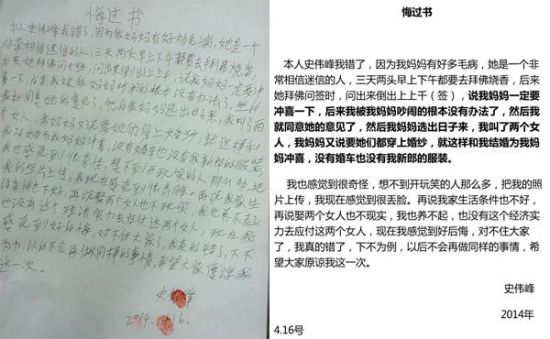 悔过书
本人史伟峰我错了,因为我妈妈有好多毛病,她是一个
非常相信迷信的人,三天两头早上下午都要去拜佛烧香,
后来她拜佛问签时,问出来倒出上上千,说我妈妈一定要冲
喜一下,后来我被我妈妈吵闹的根本没有办法了,然后
我就同意她的意见了,然后我妈妈选出日子来,我叫了两
个女人,我妈妈又说要她们都穿上婚纱,就这样和
我结婚为我妈妈冲喜,没有婚车也没有我新郎的服装,
我也感觉到很奇怪,想不到开玩笑的人那么多,把
我的照片上传,我现在感觉到很丢脸,再说我家生
活条件也不好,再说娶两个女人也不现实,我也养不起,
也没有这个经济实力去应付这两个女人,现在我
感觉到好后悔,对不住大家了,我真的错了,下不
为例,以后不会再做同样的事情,希望大家原谅我
这一次。
史伟峰
2014.4.16.
悔过书
本人史伟峰我错了,因为我妈妈有好多毛病,她是一个非
常相信迷信的人,三天两头早上下午都要去拜佛烧香,后来
她拜佛问签时,问出来倒出上上千(签),说我妈妈一定要
冲喜一下,后来我被我妈妈吵闹的根本没有办法了,然后我
就同意她的意见了,然后我妈妈选出日子来,我叫了两个女
人,我妈妈又说要她们都穿上婚纱,就这样和我结婚为我妈
妈冲喜,没有婚车也没有我新郎的服装。
我也感觉到很奇怪,想不到开玩笑的人那么多,把我的照
片上传,我现在感觉到很丢脸。再说我家生活条件也不好,
再说娶两个女人也不现实,我也养不起,也没有这个经济实
力去应付这两个女人,现在我感觉到好后悔,对不住大家
了,我真的错了,下不为例,以后不会再做同样的事情,希
望大家原谅我这一次。
史伟峰
2014年
4.16号